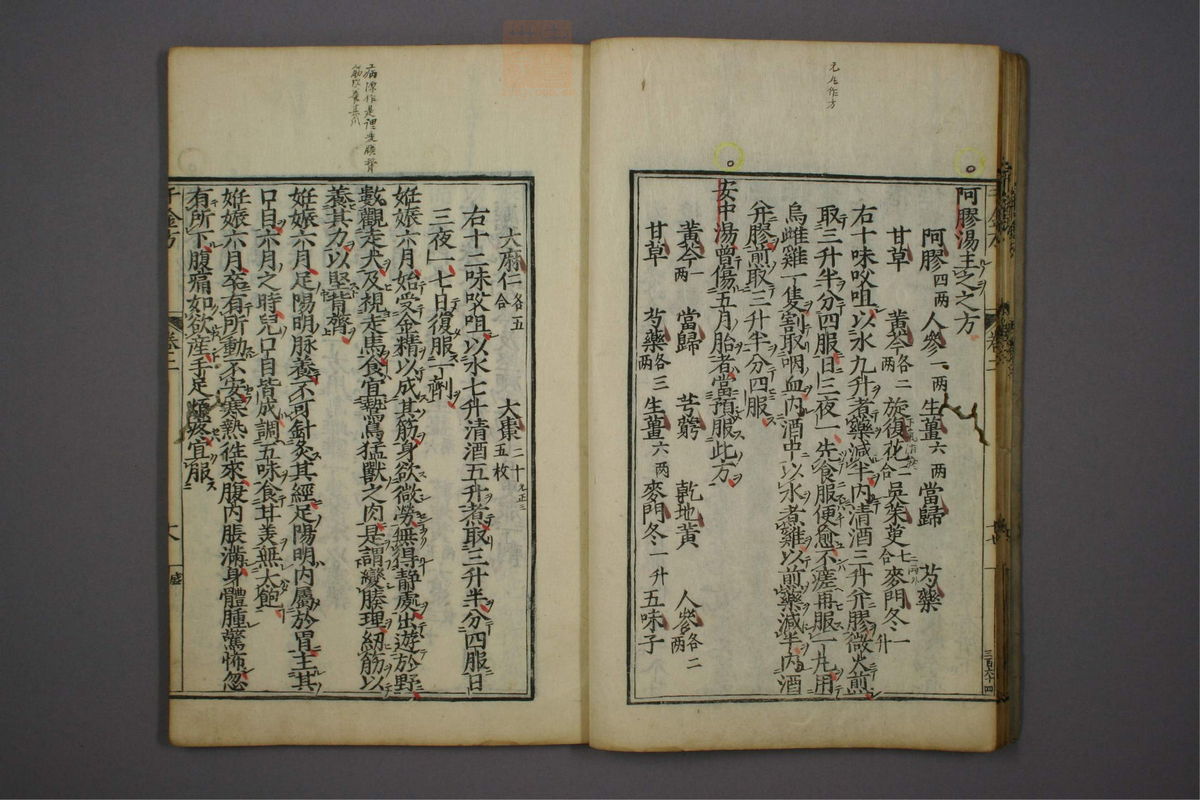 阿膠湯主之之方
阿膠四兩 人參一兩 生薑六兩 當歸 芍藥
甘草 黃芩各二兩 旋復花一合 吳茱萸七合 麥門冬一升
右十味㕮咀以水九升煮藥減半內清酒三升并膠微火煎
取三升半分四服日三夜一先食服便愈不瘥再服一方用
烏雌雞一隻割取咽血內酒中以水煮雞以煎藥減半內酒
并膠煎取三升半分四服
安中湯曾傷五月胎者當預服此方
黃芩一兩 當歸 芎藭 乾地黃 人參各二兩
甘草 芍藥各三兩 生薑六兩 麥門冬一升 五味子
大麻仁各五合 大棗三十五枚
右十二味㕮咀以水七升清酒五升煮取三升半分四服日
三夜一七日復服一劑
妊娠六月始受金精以成其筋身欲微勞無得靜處出遊於野
數觀走犬及視走馬食宜鷙鳥猛獸之肉是謂變腠理紉筋以
養其力以堅背膂
妊娠六月足陽明脉養不可針灸其經足陽明內屬於胃主其
口目六月之時兒口目皆成調五味食甘美無大飽
妊娠六月卒有所動不安寒熱往來腹內脹滿身體腫驚怖忽
有所下腹痛如欲產手足煩疼宜服
千金方 卷二